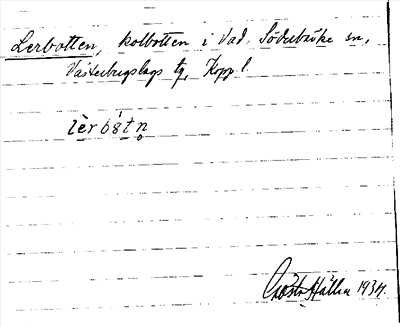 Lerbotten, kolbotten i Vad, Söderbärke sn,
Västerbergslags tg, Kopp. l.
lèr bót n̥
Gösta Hallén 1934.